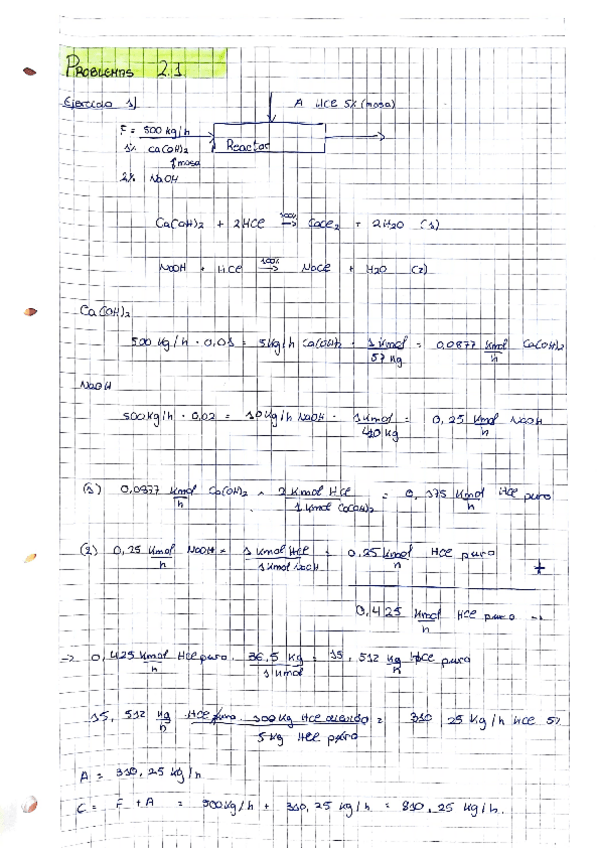 PROBLEMAS 2.1
Ejercicio 1)
A HCl 5% (masa)
F = 500 kg/h
1% Ca(OH)2
Reactor
masa
2% NaOH
Ca(OH)2 + 2HCl 100% → CaCl2 + 2H2O (1)
NaOH + HCl 100% → NaCl + H2O (2)
Ca(OH)2
500 kg/h · 0,01 = 5 kg/h Ca(OH)2 · 1 Kmol / 57 kg = 0,0877 Kmol/h Ca(OH)2
NaOH
500 kg/h · 0,02 = 10 kg/h NaOH · 1 Kmol / 40 kg = 0,25 Kmol/h NaOH
(1) 0,0877 Kmol/h Ca(OH)2 · 2 Kmol HCl / 1 Kmol Ca(OH)2 = 0,175 Kmol/h HCl puro
(2) 0,25 Kmol/h NaOH · 1 Kmol HCl / 1 Kmol NaOH = 0,25 Kmol/h HCl puro +
0,425 Kmol/h HCl puro →
→ 0,425 Kmol/h HCl puro · 36,5 kg / 1 Kmol = 15,512 kg/h HCl puro
15,512 kg/h HCl puro · 100 kg HCl / 5 kg HCl puro = 310,25 kg/h HCl 5%
A = 310,25 kg/h
C = F + A = 500 kg/h + 310,25 kg/h = 810,25 kg/h.